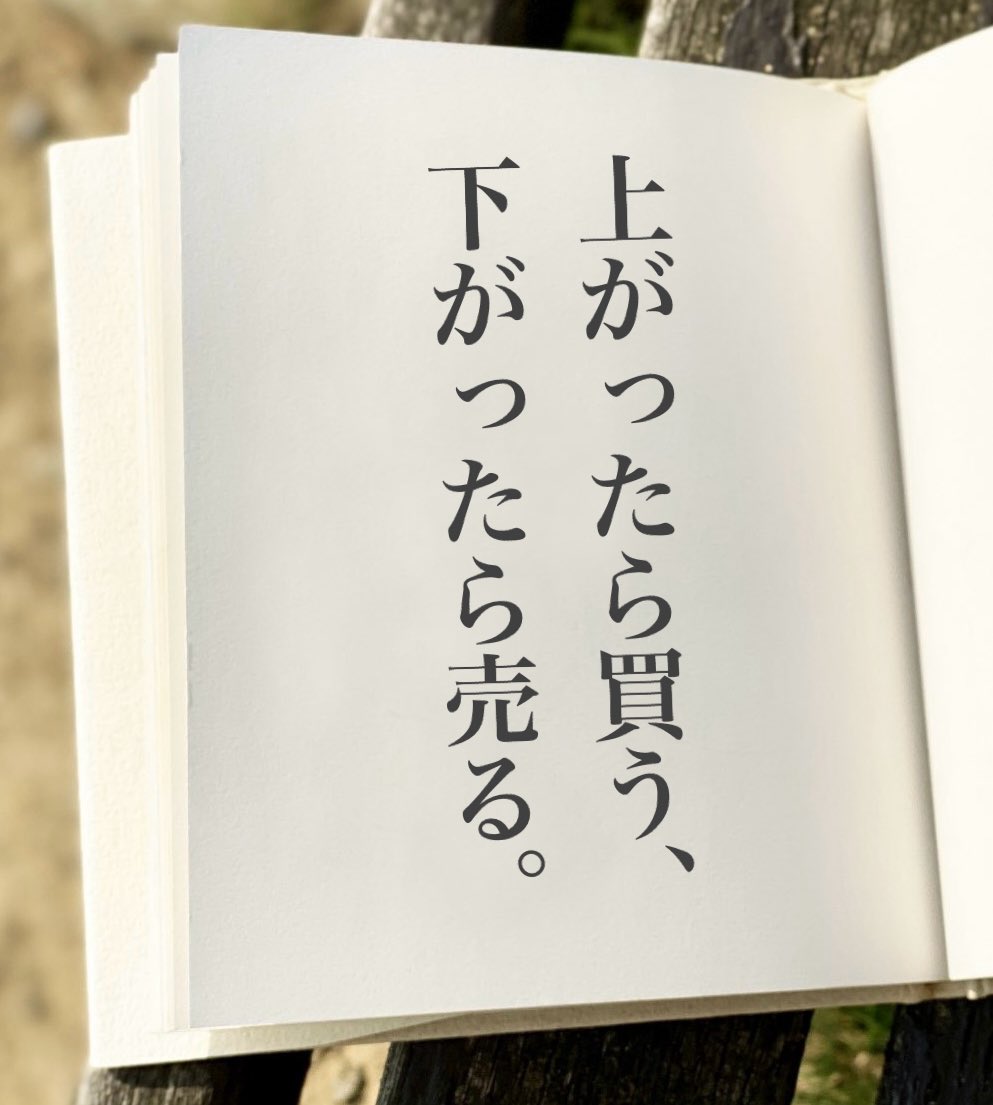 上がったら買う、
下がったら売る。